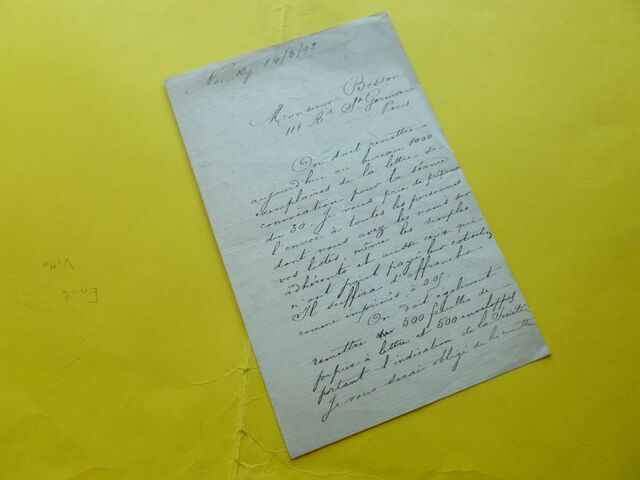 Neuilly 14/3/92
Monsieur Besson
111 Bd St Germain
Paris
On doit remettre
aujourd'hui au bureau 1000
exemplaires de la lettre de
convocation pour la séance
du 30. Je vous prie de préparer
l'envoi à toutes les personnes
dont vous avez les noms sur
vos listes, même les simples
adhérents et aussi ceux qui
n'ont point payé leur cotisation
Il suffira d'affranchir
comme imprimés à 0.05.
On doit également
remettre 500 feuilles de
papier à lettre et 500 enveloppes
portant l'indication de la Société
Je vous serai obligé de les